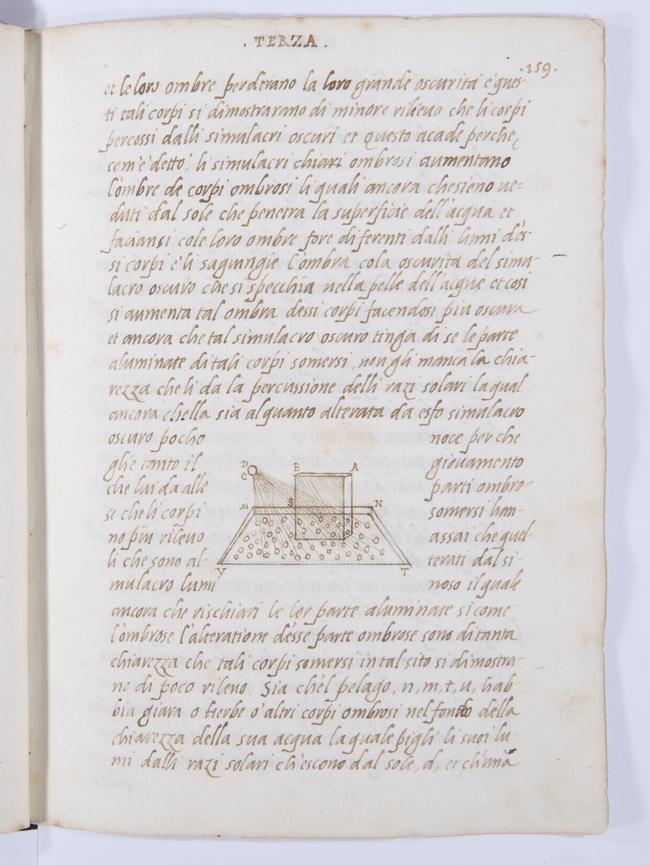 . TERZA .
.159.
et le loro ombre perderano la loro grande oscurita e ques-
ti tali corpi si dimostrarano di minore rilievo che li corpi
percossi dalli simulacri oscuri et questo acade perche,
com'è detto, li simulacri chiari ombrosi aumentano
l'ombre de corpi ombrosi li quali ancora che sieno ve-
duti dal sole che penetra la superficie dell'acqua et
faciansi cole loro ombre fore diferenti dalli lumi d'es-
si corpi e'li sagiungie l'ombra cola oscurita del simu-
lacro oscuro che si specchia nella pelle dell'acque et cosi
si aumenta tal ombra dessi corpi facendosi piu oscura
et ancora che tal simulacro oscuro tinga di se le parte
aluminate di tali corpi somersi, non gli manca la chia-
rezza che li da la percussione delli razi solari la qual
ancora chella sia alquanto alterata da esso simulacro
oscuro pocho noce per che
ghe tanto il giovamento
che lui da alle parti ombro-
se che li corpi somersi han-
no piu rilievo assai che quel-
li che sono al- terati dal si-
mulacro lumi noso il quale
D
C
B
A
S
M
N
V
T
ancora che rischiari le lor parte aluminate si come
l'ombrose l'alteratione desse parte ombrose sono di tanta
chiarezza che tali corpi somersi in tal sito si dimostra-
no di poco rilievo. Sia ch'el pelago, n, m, t, u, hab-
bia giara o herbe o altri corpi ombrosi nel fondo della
chiarezza della sua acqua la quale pigli li suoi lu-
mi dalli razi solari ch'escono dal sole, d, et ch'una